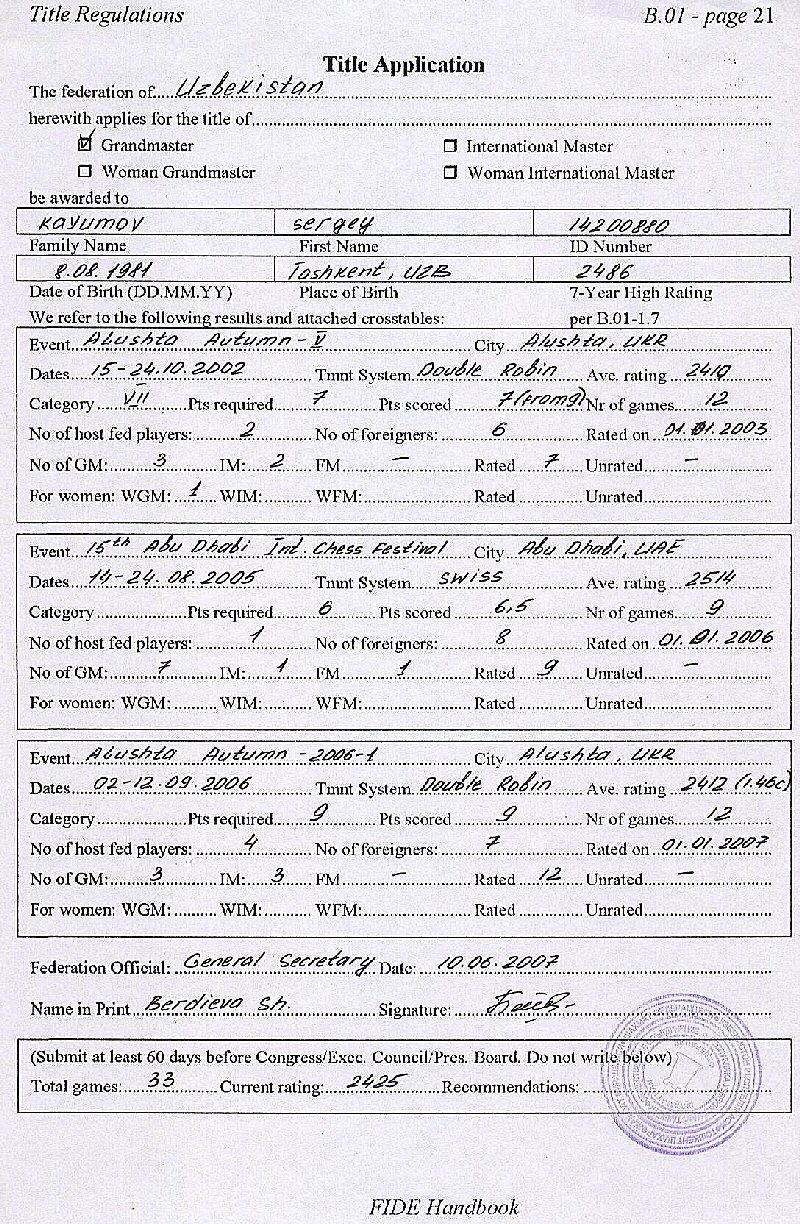 Title Regulations B.01 - page 21
Title Application
The federation of Uzbekistan
herewith applies for the title of
☑ Grandmaster ☐ International Master
☐ Woman Grandmaster ☐ Woman International Master
be awarded to
Kayumov sergey 14200880
Family Name First Name ID Number
8.08.1981 Tashkent, UZB 2486
Date of Birth (DD.MM.YY) Place of Birth 7-Year High Rating
We refer to the following results and attached crosstables: per B.01-1.7
Event Alushta Autumn - V City Alushta, UKR
Dates 15-24.10.2002 Tmnt System Double Robin Ave. rating 2410
Category VII Pts required 7 Pts scored 7 (from 9) Nr of games 12
No of host fed players: 2 No of foreigners: 6 Rated on 01.01.2003
No of GM: 3 IM: 2 FM - Rated 7 Unrated -
For women: WGM: 1 WIM: WFM: Rated Unrated
Event 15th Abu Dhabi Int. Chess Festival City Abu Dhabi, UAE
Dates 14-24.08.2005 Tmnt System swiss Ave. rating 2514
Category Pts required 6 Pts scored 6,5 Nr of games 9
No of host fed players: 1 No of foreigners: 8 Rated on 01.01.2006
No of GM: 7 IM: 1 FM 1 Rated 9 Unrated -
For women: WGM: WIM: WFM: Rated Unrated
Event Alushta Autumn -2006-1 City Alushta, UKR
Dates 02-12.09.2006 Tmnt System Double Robin Ave. rating 2412 (1.46c)
Category Pts required 9 Pts scored 9 Nr of games 12
No of host fed players: 4 No of foreigners: 7 Rated on 01.01.2007
No of GM: 3 IM: 3 FM - Rated 12 Unrated -
For women: WGM: WIM: WFM: Rated Unrated
Federation Official: General Secretary Date: 10.06.2007
Name in Print Berdieva Sh. Signature:
(Submit at least 60 days before Congress/Exec. Council/Pres. Board. Do not write below)
Total games: 33 Current rating: 2425 Recommendations:
FIDE Handbook